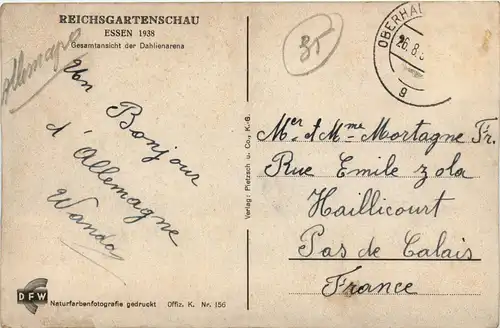 REICHSGARTENSCHAU
ESSEN 1938
Gesamtansicht der Dahlienarena
Allemagne
35
OBERHAU
26.8.3
g
Un Bonjour
d'Allemagne
Wanda
Mer et Mme Mortagne Fr.
Rue Emile Zola
Haillicourt
Pas de Calais
France
Verlag: Pietzsch u. Co., K.-G.
DFW
Naturfarbenfotografie gedruckt Offiz. K. Nr. 156